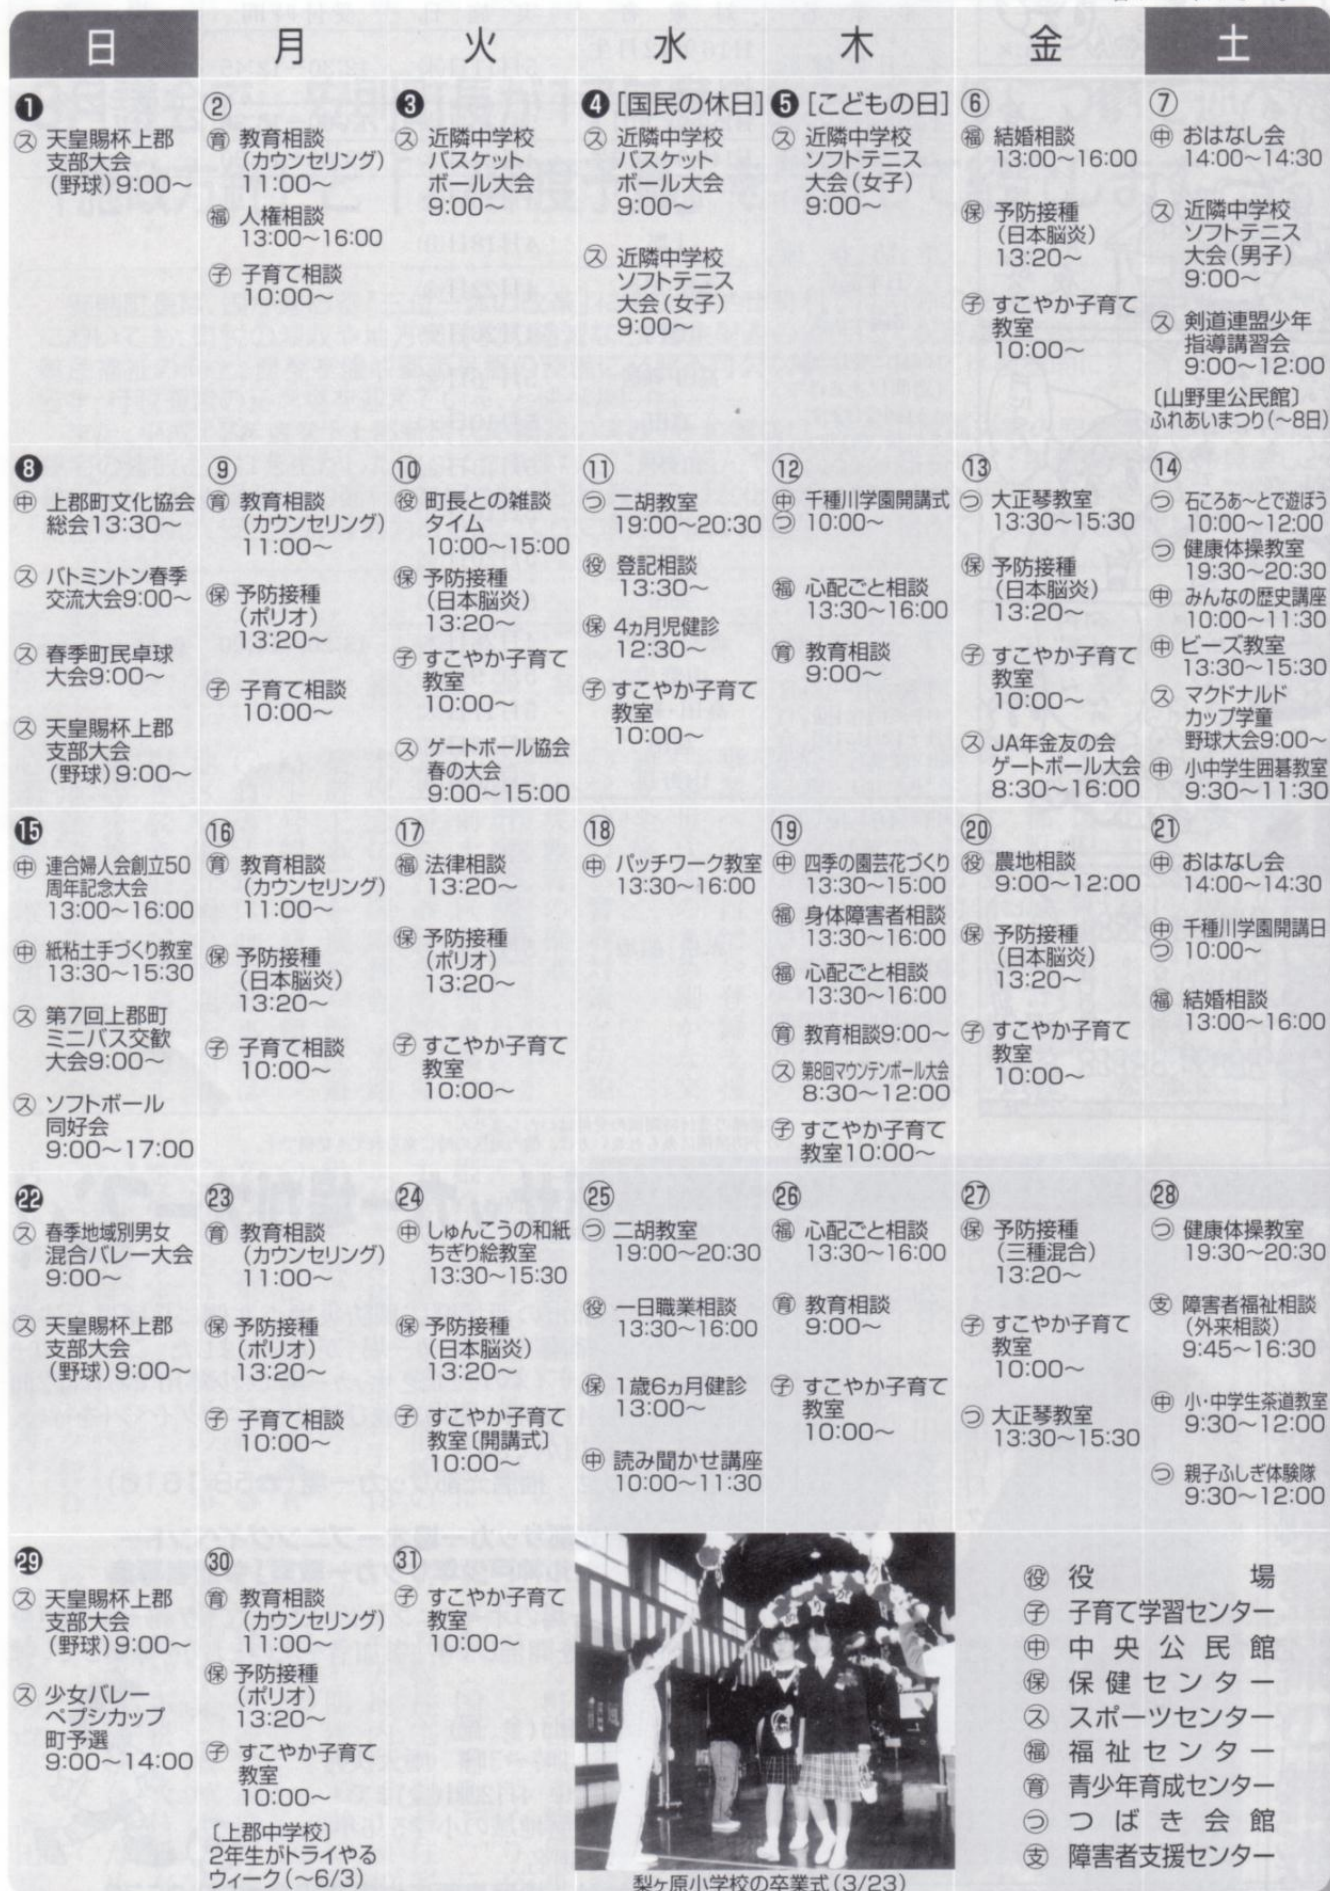 日 月 火 水 木 金 土
❶
ス 天皇賜杯上郡
支部大会
(野球)9:00〜
②
育 教育相談
(カウンセリング)
11:00〜
福 人権相談
13:00〜16:00
子 子育て相談
10:00〜
❸
ス 近隣中学校
バスケット
ボール大会
9:00〜
❹[国民の休日]
ス 近隣中学校
バスケット
ボール大会
9:00〜
ス 近隣中学校
ソフトテニス
大会(女子)
9:00〜
❺[こどもの日]
ス 近隣中学校
ソフトテニス
大会(女子)
9:00〜
⑥
福 結婚相談
13:00〜16:00
保 予防接種
(日本脳炎)
13:20〜
子 すこやか子育て
教室
10:00〜
⑦
中 おはなし会
14:00〜14:30
ス 近隣中学校
ソフトテニス
大会(男子)
9:00〜
ス 剣道連盟少年
指導講習会
9:00〜12:00
〔山野里公民館〕
ふれあいまつり(〜8日)
❽
中 上郡町文化協会
総会13:30〜
ス バトミントン春季
交流大会9:00〜
ス 春季町民卓球
大会9:00〜
ス 天皇賜杯上郡
支部大会
(野球)9:00〜
⑨
育 教育相談
(カウンセリング)
11:00〜
保 予防接種
(ポリオ)
13:20〜
子 子育て相談
10:00〜
⑩
役 町長との雑談
タイム
10:00〜15:00
保 予防接種
(日本脳炎)
13:20〜
子 すこやか子育て
教室
10:00〜
ス ゲートボール協会
春の大会
9:00〜15:00
⑪
つ 二胡教室
19:00〜20:30
役 登記相談
13:30〜
保 4ヵ月児健診
12:30〜
子 すこやか子育て
教室
10:00〜
⑫
中 千種川学園開講式
つ 10:00〜
福 心配ごと相談
13:30〜16:00
育 教育相談
9:00〜
⑬
つ 大正琴教室
13:30〜15:30
保 予防接種
(日本脳炎)
13:20〜
子 すこやか子育て
教室
10:00〜
ス JA年金友の会
ゲートボール大会
8:30〜16:00
⑭
つ 石ころあ〜とで遊ぼう
10:00〜12:00
つ 健康体操教室
19:30〜20:30
中 みんなの歴史講座
10:00〜11:30
中 ビーズ教室
13:30〜15:30
ス マクドナルド
カップ学童
野球大会9:00〜
中 小中学生囲碁教室
9:30〜11:30
⓯
中 連合婦人会創立50
周年記念大会
13:00〜16:00
中 紙粘土手づくり教室
13:30〜15:30
ス 第7回上郡町
ミニバス交歓
大会9:00〜
ス ソフトボール
同好会
9:00〜17:00
⑯
育 教育相談
(カウンセリング)
11:00〜
保 予防接種
(日本脳炎)
13:20〜
子 子育て相談
10:00〜
⑰
福 法律相談
13:20〜
保 予防接種
(ポリオ)
13:20〜
子 すこやか子育て
教室
10:00〜
⑱
中 パッチワーク教室
13:30〜16:00
⑲
中 四季の園芸花づくり
13:30〜15:00
福 身体障害者相談
13:30〜16:00
福 心配ごと相談
13:30〜16:00
育 教育相談9:00〜
ス 第8回マウンテンボール大会
8:30〜12:00
子 すこやか子育て
教室10:00〜
⑳
役 農地相談
9:00〜12:00
保 予防接種
(日本脳炎)
13:20〜
子 すこやか子育て
教室
10:00〜
㉑
中 おはなし会
14:00〜14:30
中 千種川学園開講日
つ 10:00〜
福 結婚相談
13:00〜16:00
㉒
ス 春季地域別男女
混合バレー大会
9:00〜
ス 天皇賜杯上郡
支部大会
(野球)9:00〜
㉓
育 教育相談
(カウンセリング)
11:00〜
保 予防接種
(ポリオ)
13:20〜
子 子育て相談
10:00〜
㉔
中 しゅんこうの和紙
ちぎり絵教室
13:30〜15:30
保 予防接種
(日本脳炎)
13:20〜
子 すこやか子育て
教室〔開講式〕
10:00〜
㉕
つ 二胡教室
19:00〜20:30
役 一日職業相談
13:30〜16:00
保 1歳6ヵ月健診
13:00〜
中 読み聞かせ講座
10:00〜11:30
㉖
福 心配ごと相談
13:30〜16:00
育 教育相談
9:00〜
子 すこやか子育て
教室
10:00〜
㉗
保 予防接種
(三種混合)
13:20〜
子 すこやか子育て
教室
10:00〜
つ 大正琴教室
13:30〜15:30
㉘
つ 健康体操教室
19:30〜20:30
支 障害者福祉相談
(外来相談)
9:45〜16:30
中 小・中学生茶道教室
9:30〜12:00
つ 親子ふしぎ体験隊
9:30〜12:00
㉙
ス 天皇賜杯上郡
支部大会
(野球)9:00〜
ス 少女バレー
ペプシカップ
町予選
9:00〜14:00
㉚
育 教育相談
(カウンセリング)
11:00〜
保 予防接種
(ポリオ)
13:20〜
子 すこやか子育て
教室
10:00〜
〔上郡中学校〕
2年生がトライやる
ウィーク(〜6/3)
㉛
子 すこやか子育て
教室
10:00〜
梨ヶ原小学校の卒業式(3/23)
役 役場
子 子育て学習センター
中 中央公民館
保 保健センター
ス スポーツセンター
福 福祉センター
育 青少年育成センター
つ つばき会館
支 障害者支援センター